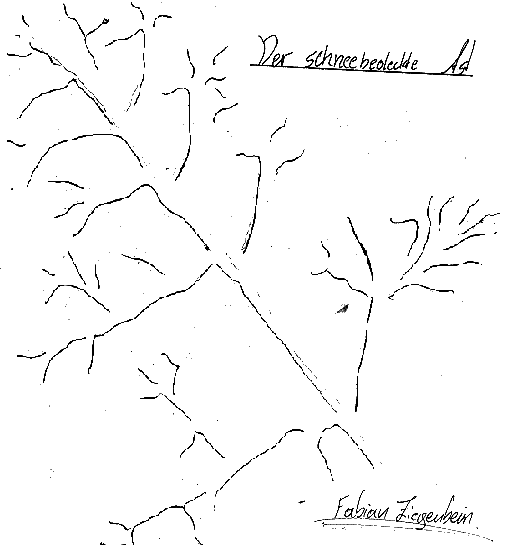 Der schneebedeckte Ast
Fabian Ziegenbein